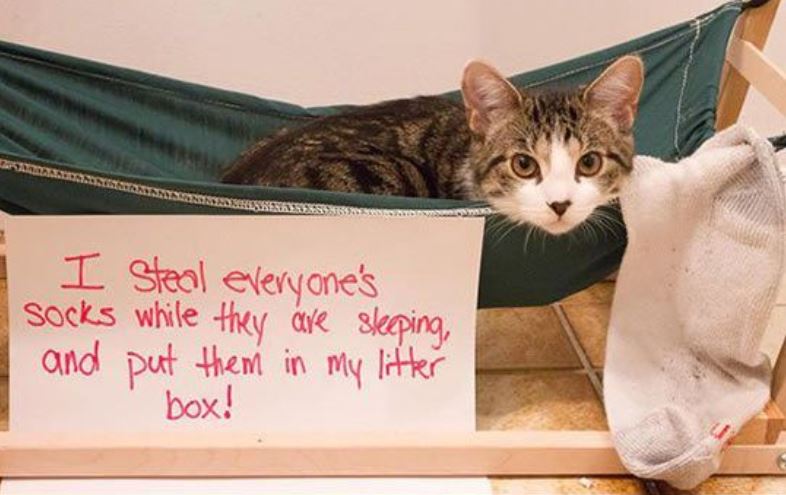 I steal everyone's
socks while they are sleeping,
and put them in my litter
box!